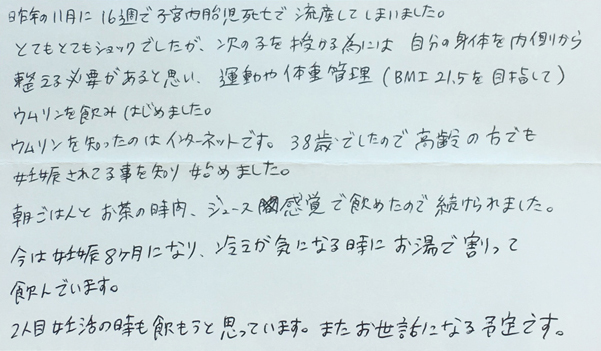 昨年の11月に16週で子宮内胎児死亡で流産してしまいました。
とてもとてもショックでしたが、次の子を授かる為には自分の身体を内側から
整える必要があると思い、運動や体重管理(BMI 21.5を目指して)
ウムリンを飲みはじめました。
ウムリンを知ったのはインターネットです。38歳でしたので高齢の方でも
妊娠されてる事を知り始めました。
朝ごはんとお茶の時間、ジュース感覚で飲めたので続けられました。
今は妊娠8ヶ月になり、冷えが気になる時にお湯で割って
飲んでいます。
2人目妊活の時も飲もうと思っています。またお世話になる予定です。